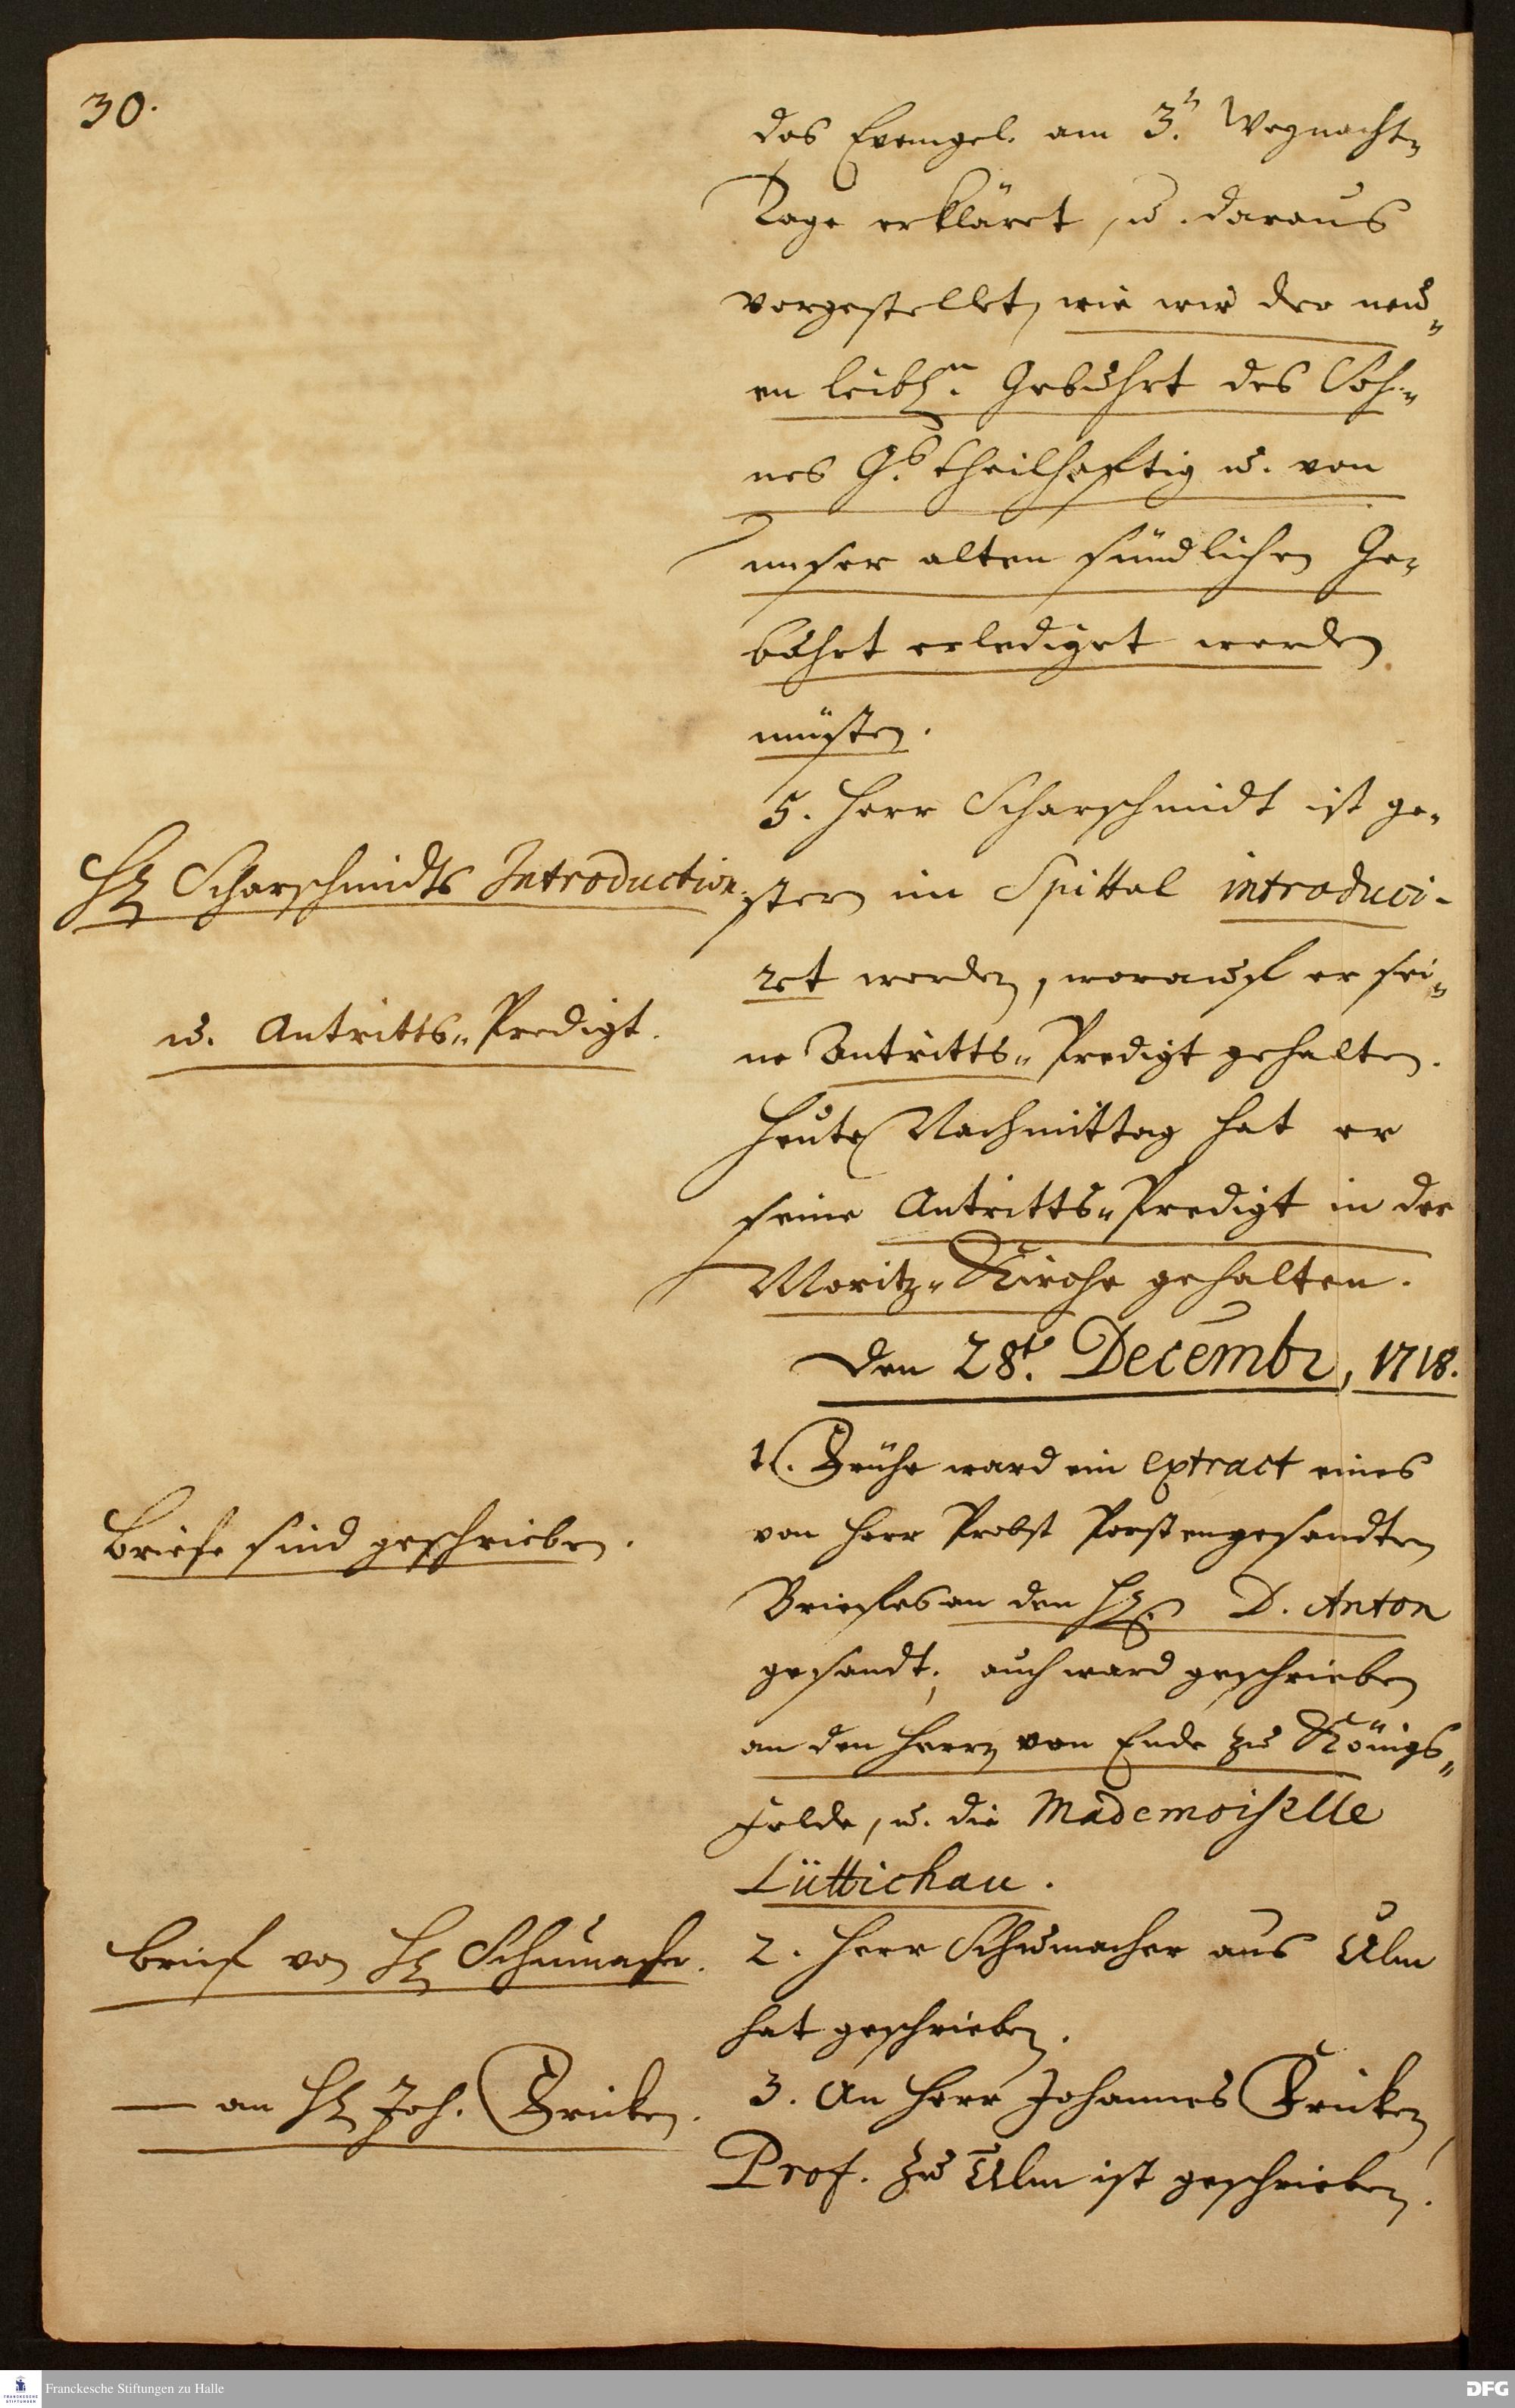 30.
das Evangel. am 3.t Weynacht-
Tage erkläret, u. daraus
vorgestellet, wie wir der neu-
en leibl.n Gebuhrt des Soh-
nes G.s theilhaftig u. von
unser alten sündlichen Ge-
buhrt erlediget werden
müsten.
5. Herr Scharschmidt ist ge-
H Scharschmidts Introduction
stern im Spittal introduci-
ret worden, worauf er sei-
u. Antritts-Predigt.
ne Antritts-Predigt gehalten.
Heute Nachmittag hat er
seine Antritts-Predigt in der
Moritz-Kirche gehalten.
Den 28.t Decembr, 1718.
1. Frühe ward ein extract eines
von Herr Probst Porsten gesandten
Briefe sind geschrieben.
Briefes an den H. D. Anton
gesandt; auch ward geschrieben
an den Herrn von Ende zu Königs-
felde, u. die Mademoiselle
Lüttichau.
Brief von H Schumacher.
2. Herr Schumacher aus Ulm
hat geschrieben.
— an H Joh. Fricken.
3. An Herr Johannes Fricken
Prof. zu Ulm ist geschrieben.
Franckesche Stiftungen zu Halle
DFG